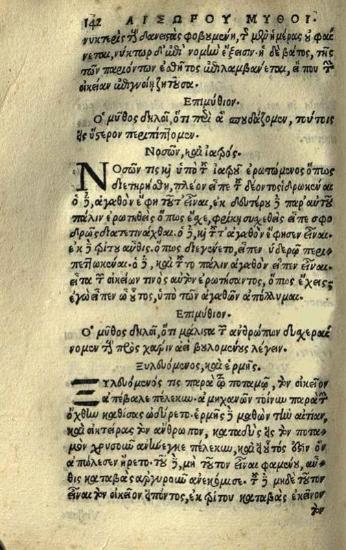 142 ΑΙΣΩΠΟΥ ΜΥΘΟΙ.
νυκτερὶς τοὺς δανειστὰς φοβουμένη, τὸ μὲν ἡμέρας οὐ φαί
νεται, νύκτωρ δ' ἐπὶ νομὴν ἔξεισιν· ἡ δὲ βάτος, τῆς
τῶν παριόντων ἐσθῆτος ἐπιλαμβάνεται, εἴ που τὴν
οἰκείαν ἐπιγνοίη ζητοῦσα.
Ἐπιμύθιον.
Ὁ μῦθος δηλοῖ, ὅτι περὶ ἃ σπουδάζομεν, τούτοις
καὶ ὕστερον περιπίπτομεν.
Νοσῶν, καὶ ἰατρός.
Νοσῶν τις καὶ ὑπὸ τοῦ ἰατροῦ ἐρωτώμενος ὅπως
διετηρήθη, πλέον εἶπε τοῦ δέοντος ἱδρωκέναι
ὁ δὲ, ἀγαθὸν ἔφη τοῦτ' εἶναι, ἐκ δευτέρου δὲ παρ' αὐτοῦ
πάλιν ἐρωτηθεὶς ὅπως ἔσχε, φρίκῃ συσχεθεὶς εἶπε σφο
δρῶς διατετινάχθαι. ὁ δὲ, καὶ τοῦτ' ἀγαθὸν ἔφησεν εἶναι.
ἐκ τρίτου αὖθις. ὅπως διεγένετο, εἶπεν ὑδέρῳ περι
πεπτωκέναι. ὁ δὲ, καὶ τοῦτο πάλιν ἀγαθὸν εἶπεν εἶναι.
εἶτα τῶν οἰκείων τινὸς αὐτὸν ἐρωτήσαντος, ὅπως ἔχεις;
ἐγὼ εἶπεν ὦ οὗτος, ὑπὸ τῶν ἀγαθῶν ἀπόλλυμαι.
Ἐπιμύθιον.
Ὁ μῦθος δηλοῖ, ὅτι μάλιστα τῶν ἀνθρώπων δυσχεραί
νομεν τοὺς πρὸς χάριν ἀεὶ βουλομένους λέγειν.
Ξυλευόμενος, καὶ ἑρμῆς.
Ξυλευόμενός τις παρά τῳ ποταμῷ, τὸν οἰκεῖον
ἀπέβαλε πέλεκυν. ἀμηχανῶν τοίνυν παρὰ τὴν
ὄχθην καθίσας ὠδύρετο. ἑρμῆς δὲ μαθὼν τὴν αἰτίαν,
καὶ οἰκτείρας τὸν ἄνθρωπον, καταδὺς εἰς τὸν ποτα
μὸν χρυσοῦν ἀνήνεγκε πέλεκυν, καὶ εἰ οὗτός ἐστιν ὃν
ἀπώλεσεν ἤρετο. τοῦ δὲ, μὴ τοῦτον εἶναι φαμένου, αὖ
θις καταβὰς ἀργυροῦν ἀνεκόμισε. τοῦ δὲ μηδὲ τοῦτον
εἶναι τὸν οἰκεῖον εἰπόντος, ἐκ τρίτου καταβὰς ἐκεῖνον
τὸν